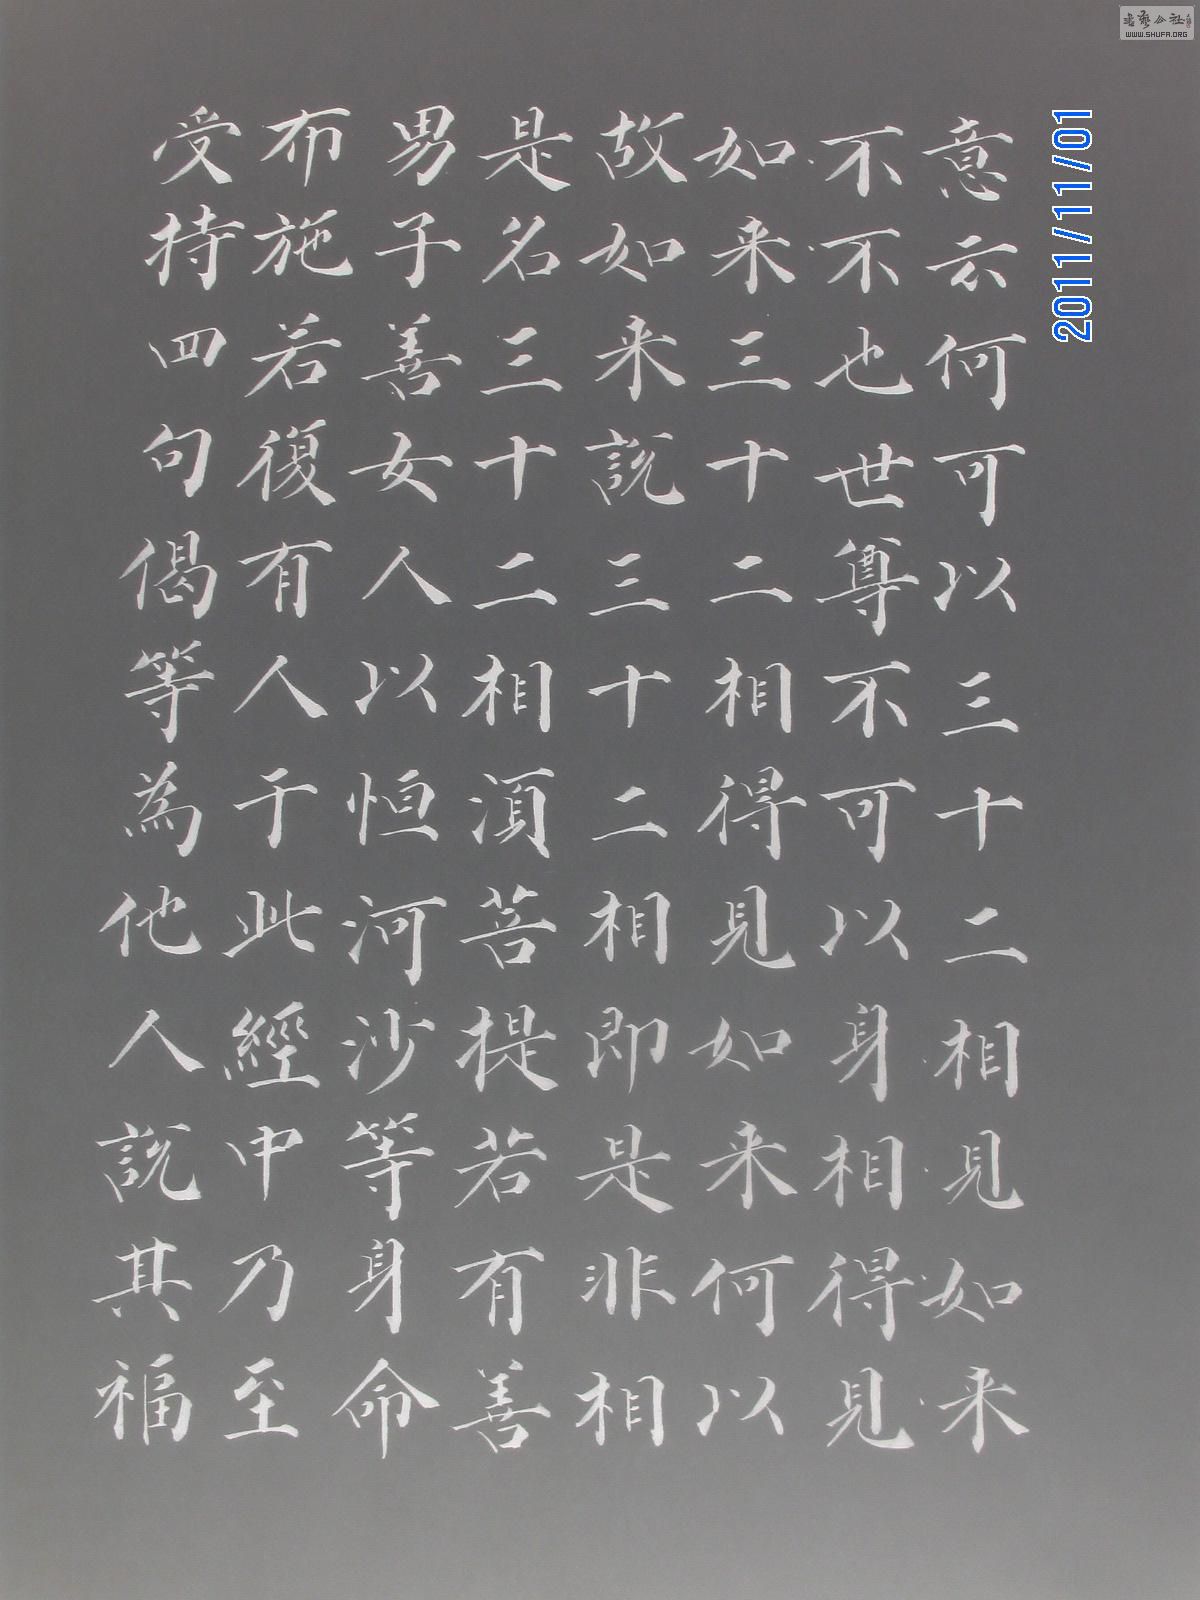 意云何可以三十二相見如来
不不也世尊不可以身相得見
如来三十二相得見如来何以
故如来説三十二相即是非相
是名三十二相須菩提若有善
男子善女人以恒河沙等身命
布施若復有人于此經中乃至
受持四句偈等為他人説其福
2011/11/01
書藝公社
WWW.SHUFA.ORG